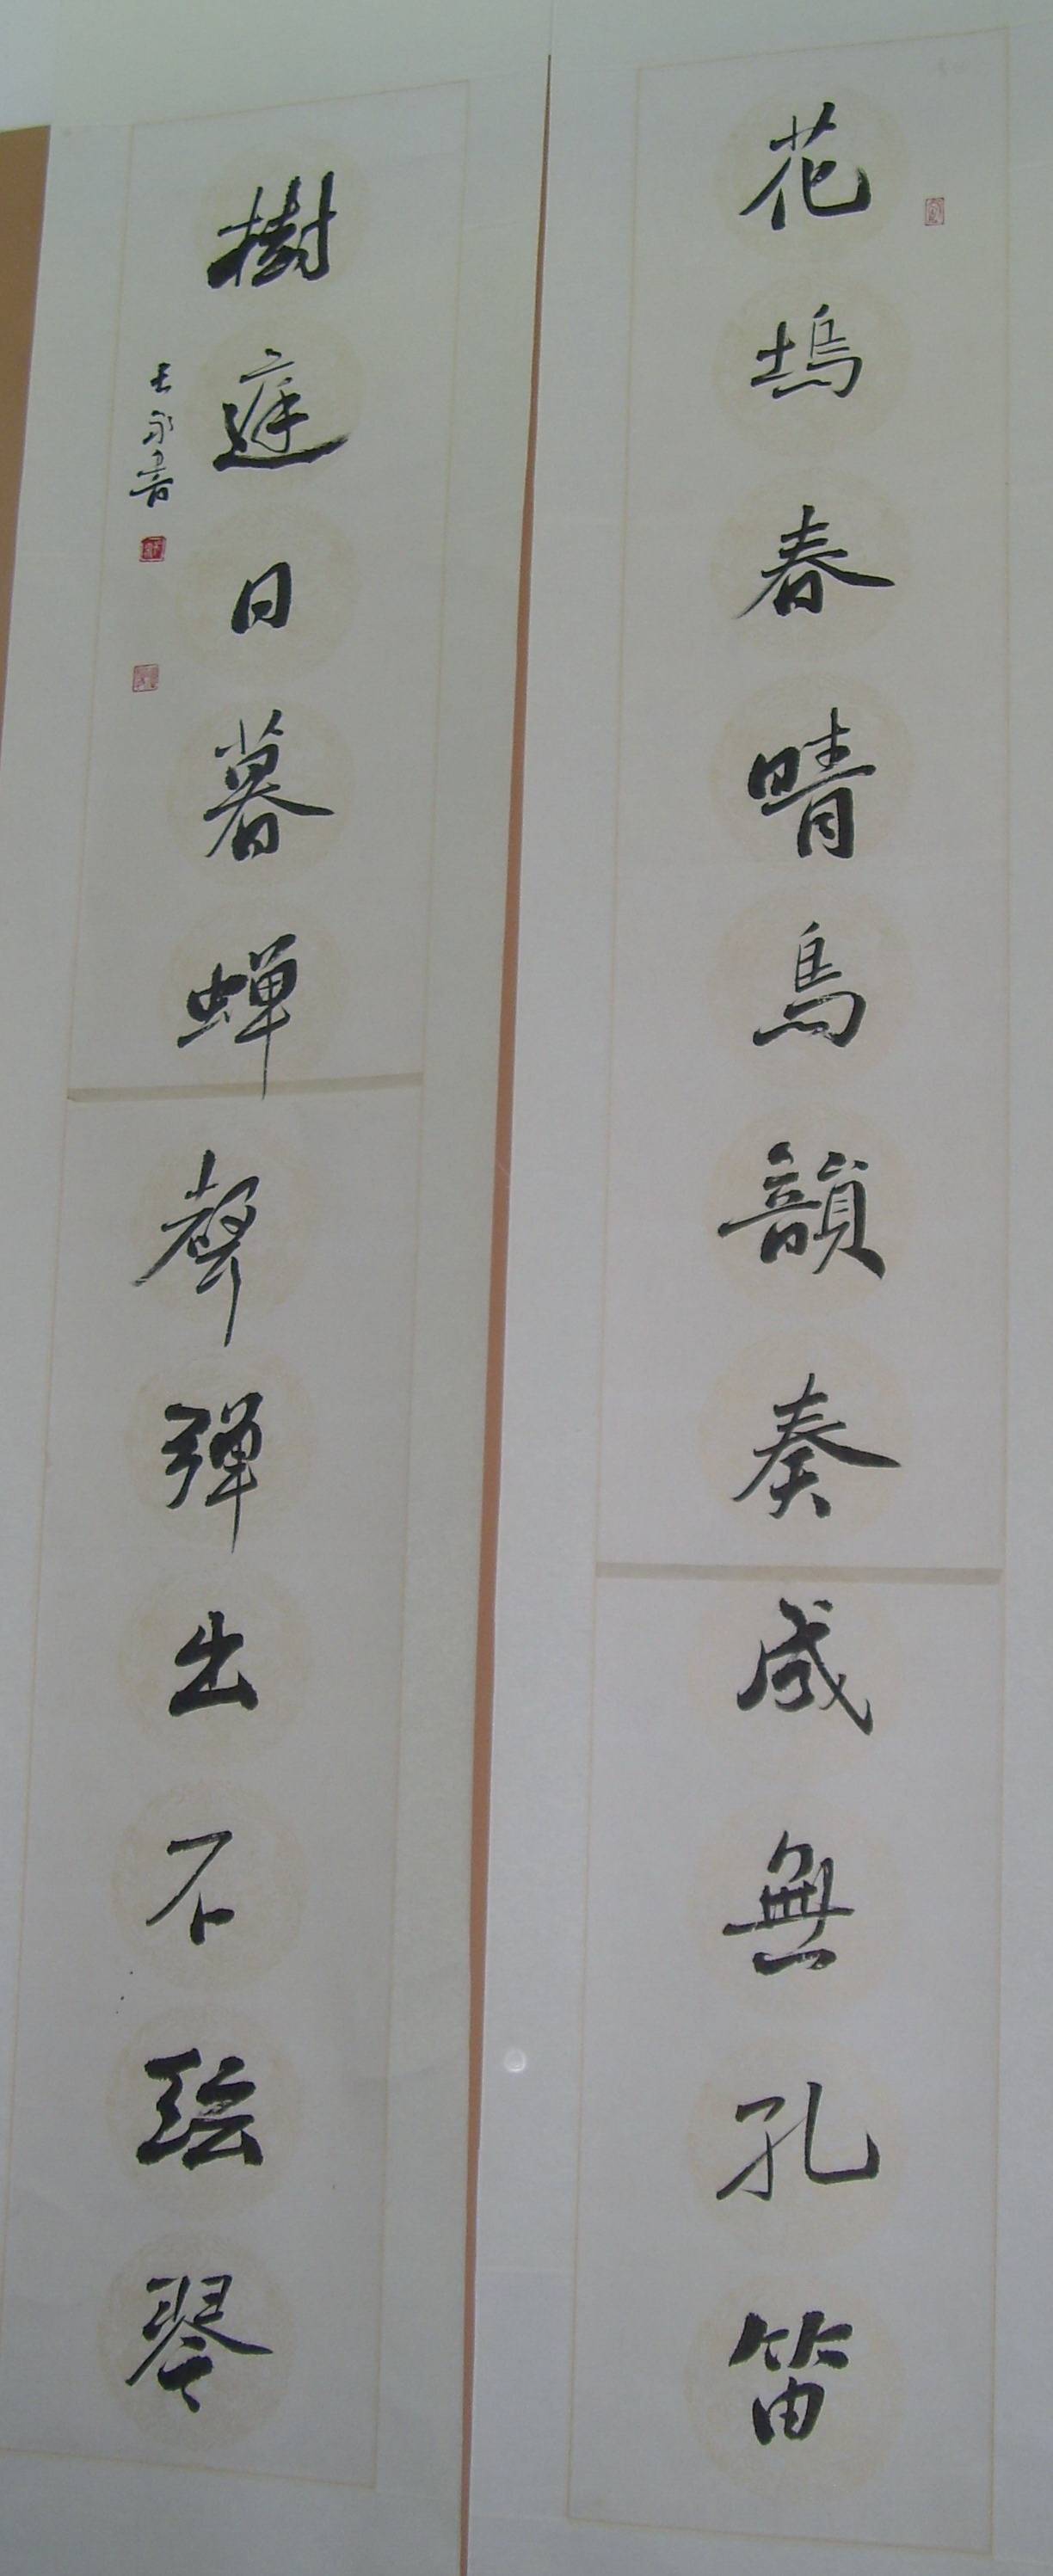 花塢春晴鳥韻奏成無孔笛
樹庭日暮蟬聲彈出不絃琴
永書